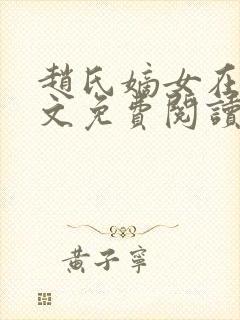 趙氏嫡女在
文免費閱讀
黃子寧